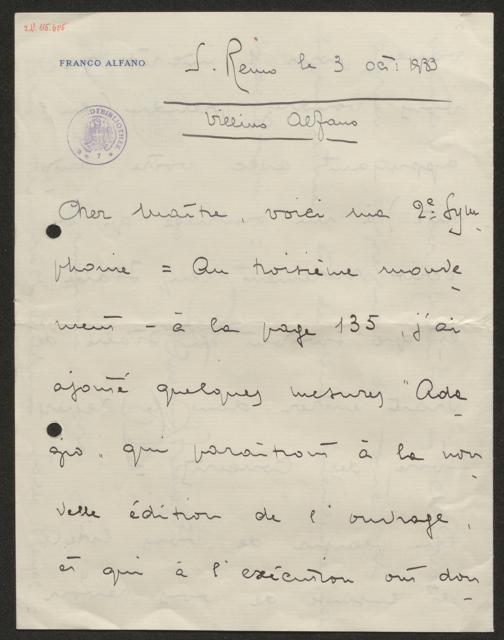 I.N. 115.605
FRANCO ALFANO
S. Remo le 3 oct: 1933
Villino Alfano
Cher Maître, voici ma 2e: Sym
phonie = Au troisième mouve
ment - à la page 135, j'ai
ajouté quelques mesures "Ada
gio" qui paraîtront à la nou
velle édition de l'ouvrage,
et qui à l'exécution ont don